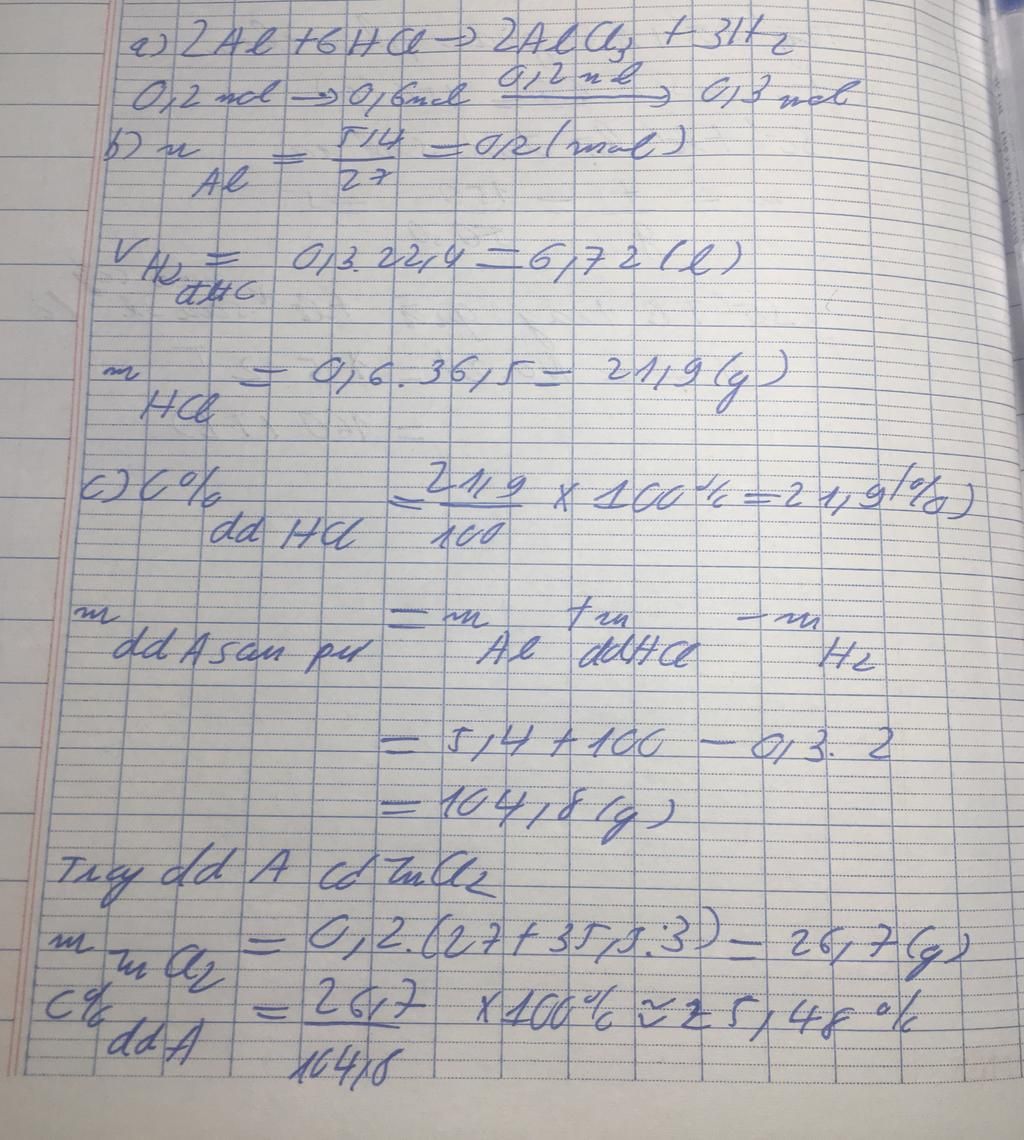 a) 2Al + 6HCl → 2AlCl3 + 3H2
0,2 mol → 0,6 mol 0,2 mol → 0,3 mol
b) n Al = 5,4 / 27 = 0,2 (mol)
V H2 = 0,3.22,4 = 6,72 (l)
đktc
m HCl = 0,6.36,5 = 21,9 (g)
c) C% dd HCl = 21,9 / 100 × 100% = 21,9 (%)
m dd A sau pư = m Al + m ddHCl - m H2
= 5,4 + 100 - 0,3. 2
= 104,8 (g)
dd A ZnCl2
m ZnCl2 = 0,2.(27+35,5.3) = 26,7 (g)
C% dd A = 26,7 / 104,8 × 100% ≈ 25,48 %